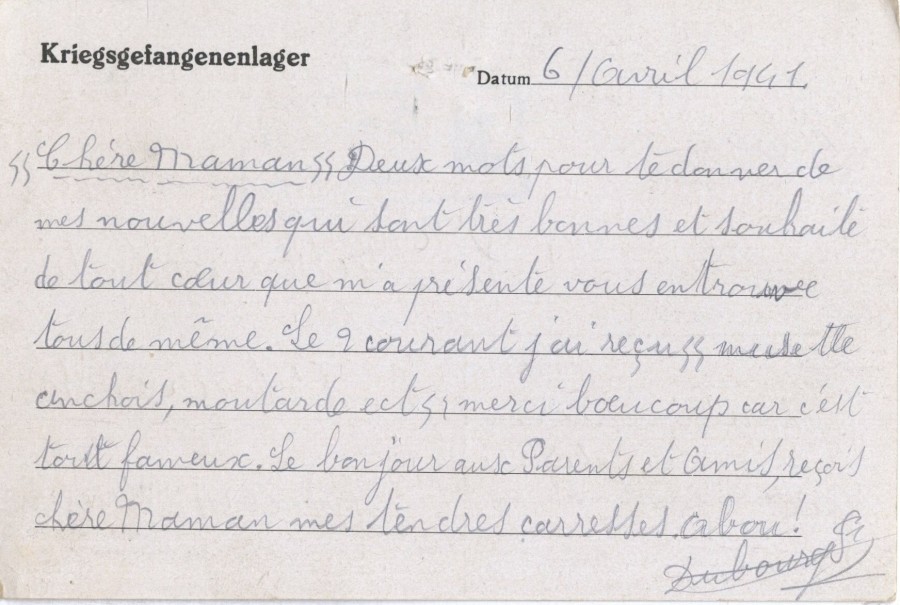 Kriegsgefangenenlager
Datum 6/Avril 1941.
"Chére Maman" Deux mots pour te donner de
mes nouvelles qui sont très bonnes et souhaite
de tout cœur que m'a présente vous en trouvee
tous de même. Le 2 courant j'ai reçu "musette
anchois, moutarde ect" merci bœucoup car c'est
tout fameux. Le bonjour aux Parents et Amis, reçois
chère Maman mes tendres carresses. Abou!
Dubourg